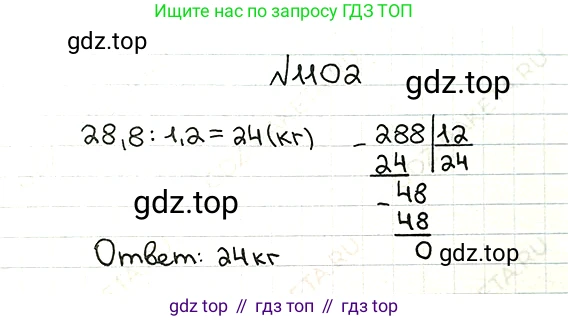 Ищите нас по запросу ГДЗ ТОП
gdz.top
№1102
gdz.top
28,8 : 1,2 = 24 (кг)
- 288 | 12
24 | 24
- 48
48
0
gdz.top
gdz.top
Ответ: 24 кг
gdz top // гдз топ // gdz.top